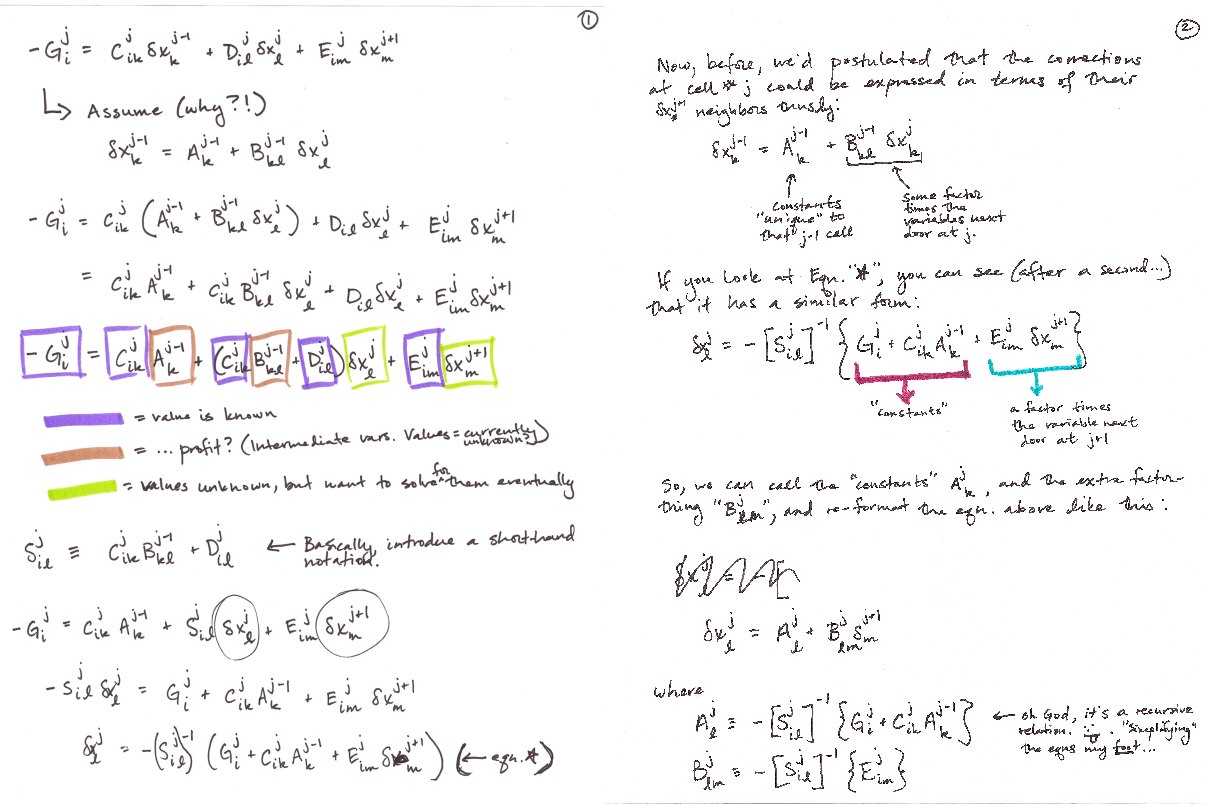 ①
-G_i^j = C_ik^j δx_k^{j-1} + D_il^j δx_l^j + E_im^j δx_m^{j+1}
↳ Assume (why?!)
δx_k^{j-1} = A_k^{j-1} + B_kl^{j-1} δx_l^j
-G_i^j = C_ik^j (A_k^{j-1} + B_kl^{j-1} δx_l^j) + D_il δx_l^j + E_im^j δx_m^{j+1}
= C_ik^j A_k^{j-1} + C_ik^j B_kl^{j-1} δx_l^j + D_il δx_l^j + E_im^j δx_m^{j+1}
-G_i^j = C_ik^j A_k^{j-1} + (C_ik^j B_kl^{j-1} + D_il^j) δx_l^j + E_im^j δx_m^{j+1}
= value is known
= ... profit? (Intermediate vars. Values = currently unknown?)
= values unknown, but want to solve for them eventually
S_il^j ≡ C_ik^j B_kl^{j-1} + D_il^j ← Basically, introduce a short-hand
notation.
-G_i^j = C_ik^j A_k^{j-1} + S_il^j δx_l^j + E_im^j δx_m^{j+1}
-S_il^j δx_l^j = G_i^j + C_ik^j A_k^{j-1} + E_im^j δx_m^{j+1}
δx_l^j = -(S_il^j)^{-1} (G_i^j + C_ik^j A_k^{j-1} + E_im^j δx_m^{j+1}) (← eqn. *)
②
Now, before, we'd postulated that the corrections
at cell # j could be expressed in terms of their
δx^{j+1} neighbors thusly:
δx_k^{j-1} = A_k^{j-1} + B_kl^{j-1} δx_k^j
constants
"unique" to
that j-1 cell
some factor
times the
variables next
door at j.
If you look at Eqn. "*", you can see (after a second...)
that it has a similar form:
δ_l^j = -[S_il^j]^{-1} {G_i^j + C_ik^j A_k^{j-1} + E_im^j δx_m^{j+1}}
"constants"
a factor times
the variable next
door at j+1
So, we can call the "constants" A_k^j, and the extra factor-
thing "B_lm^j", and re-format the eqn. above like this:
δx_l^j = A_l^j + B_lm^j δ_m^{j+1}
where
A_l^j ≡ -[S_il^j]^{-1} {G_i^j + C_ik^j A_k^{j-1}}
← oh God, it's a recursive
relation. "simplifying"
the eqns my foot...
B_lm^j ≡ -[S_il^j]^{-1} {E_im^j}